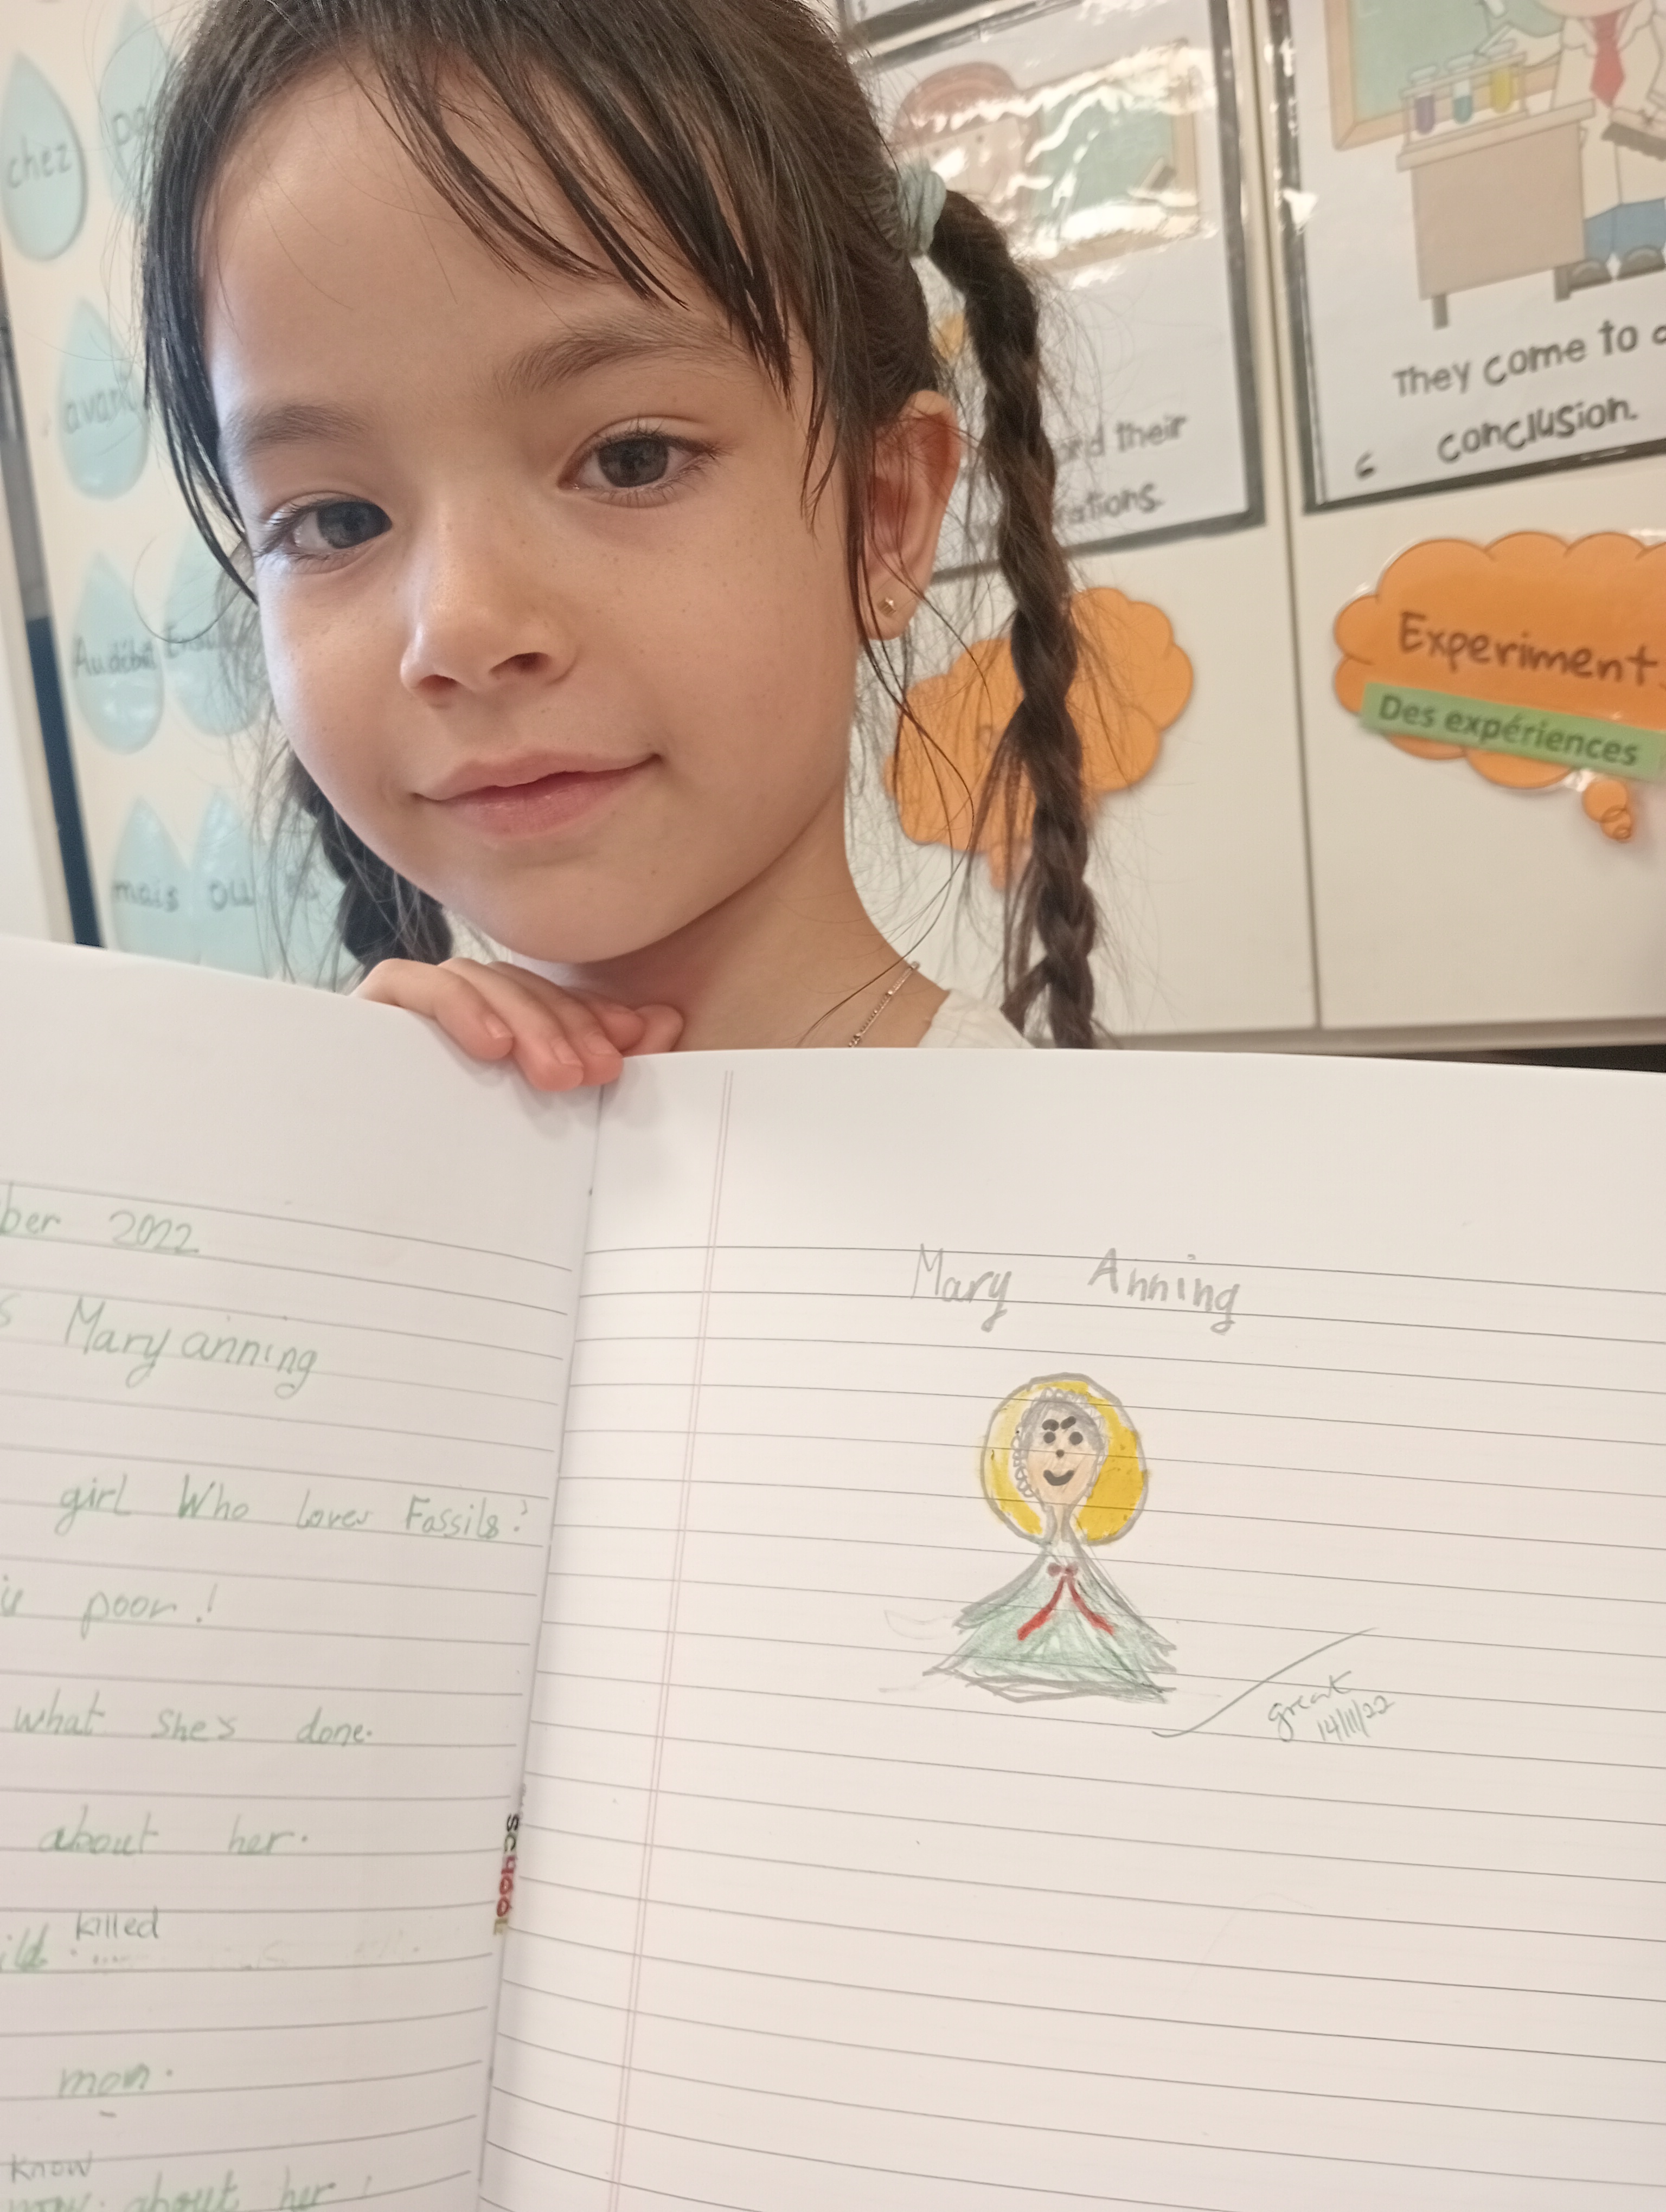 chez
avant
Au début
mais
ou
and their
They come to a
conclusion.
6
Experiment
Des expériences
ber 2022
s Mary anning
girl Who loves Fossils?
poor!
what she's done.
about her.
killed
mom.
know
about her!
SCHOOL
Mary Anning
great
14/11/22